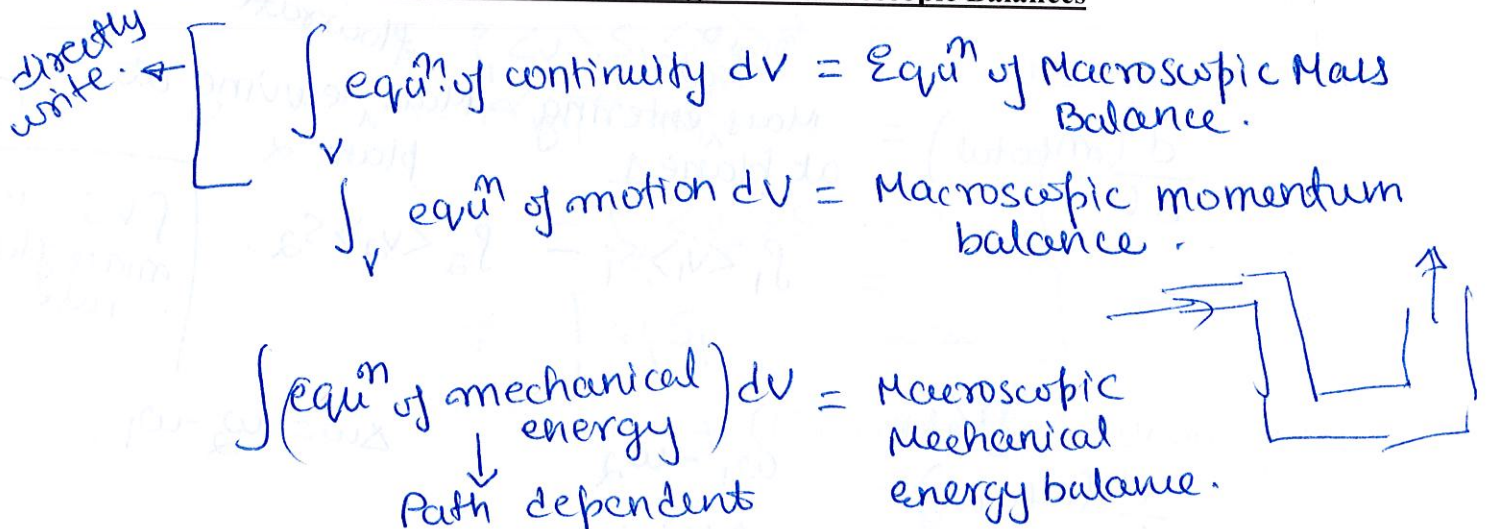 directly
write.
∫_V equⁿ. of continuity dV = Equⁿ of Macroscopic Mass
Balance.
∫_V equⁿ of motion dV = Macroscopic momentum
balance.
∫(equⁿ of mechanical energy) dV = Macroscopic
Mechanical
energy balance.
Path dependent